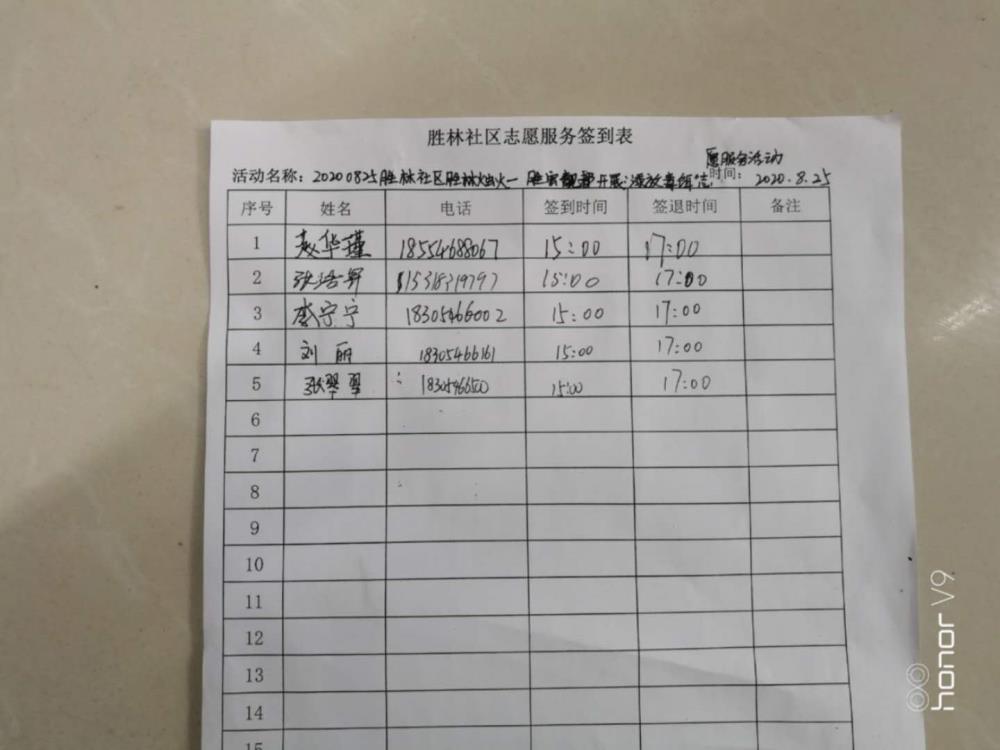 胜林社区志愿服务签到表
愿服务活动
活动名称：20200825胜林社区胜林灿火一 开展 时间：2020.8.25
序号 姓名 电话 签到时间 签退时间 备注
1 华瑾 18554688067 15:00 17:00
2 张浩 15:00 17:00
3 宁宁 18305466002 15:00 17:00
4 刘丽 18305466161 15:00 17:00
5 张翠翠 18305466500 15:00 17:00
6
7
8
9
10
11
12
13
14
15
honor V9